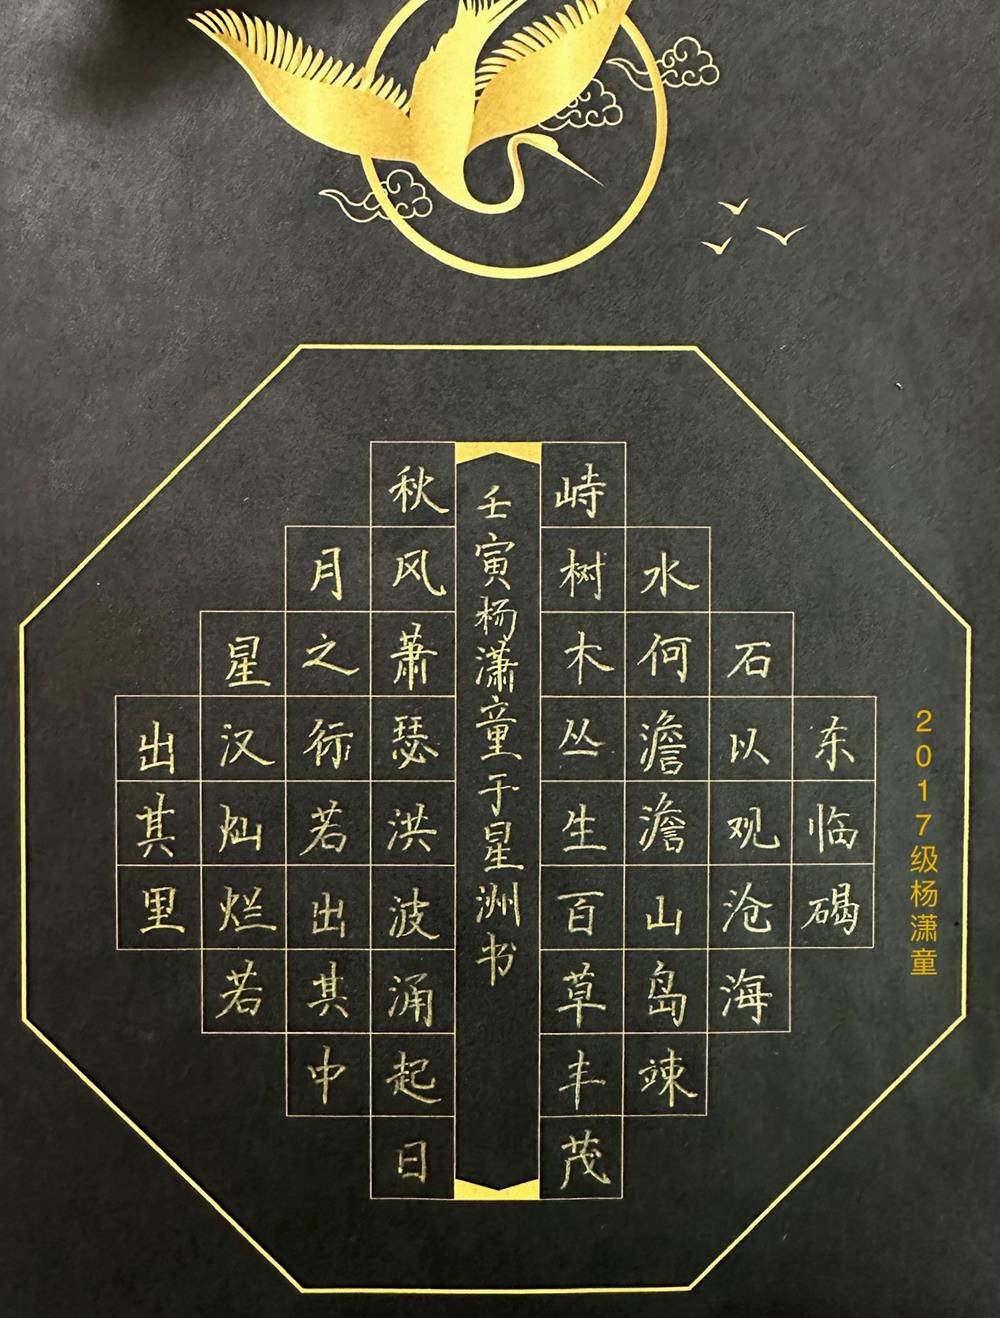 东临碣
石以观沧海
水何澹澹山岛竦
峙树木丛生百草丰茂
壬寅杨潇童于星洲书
秋风萧瑟洪波涌起日
月之行若出其中
星汉灿烂若
出其里
2017级杨潇童